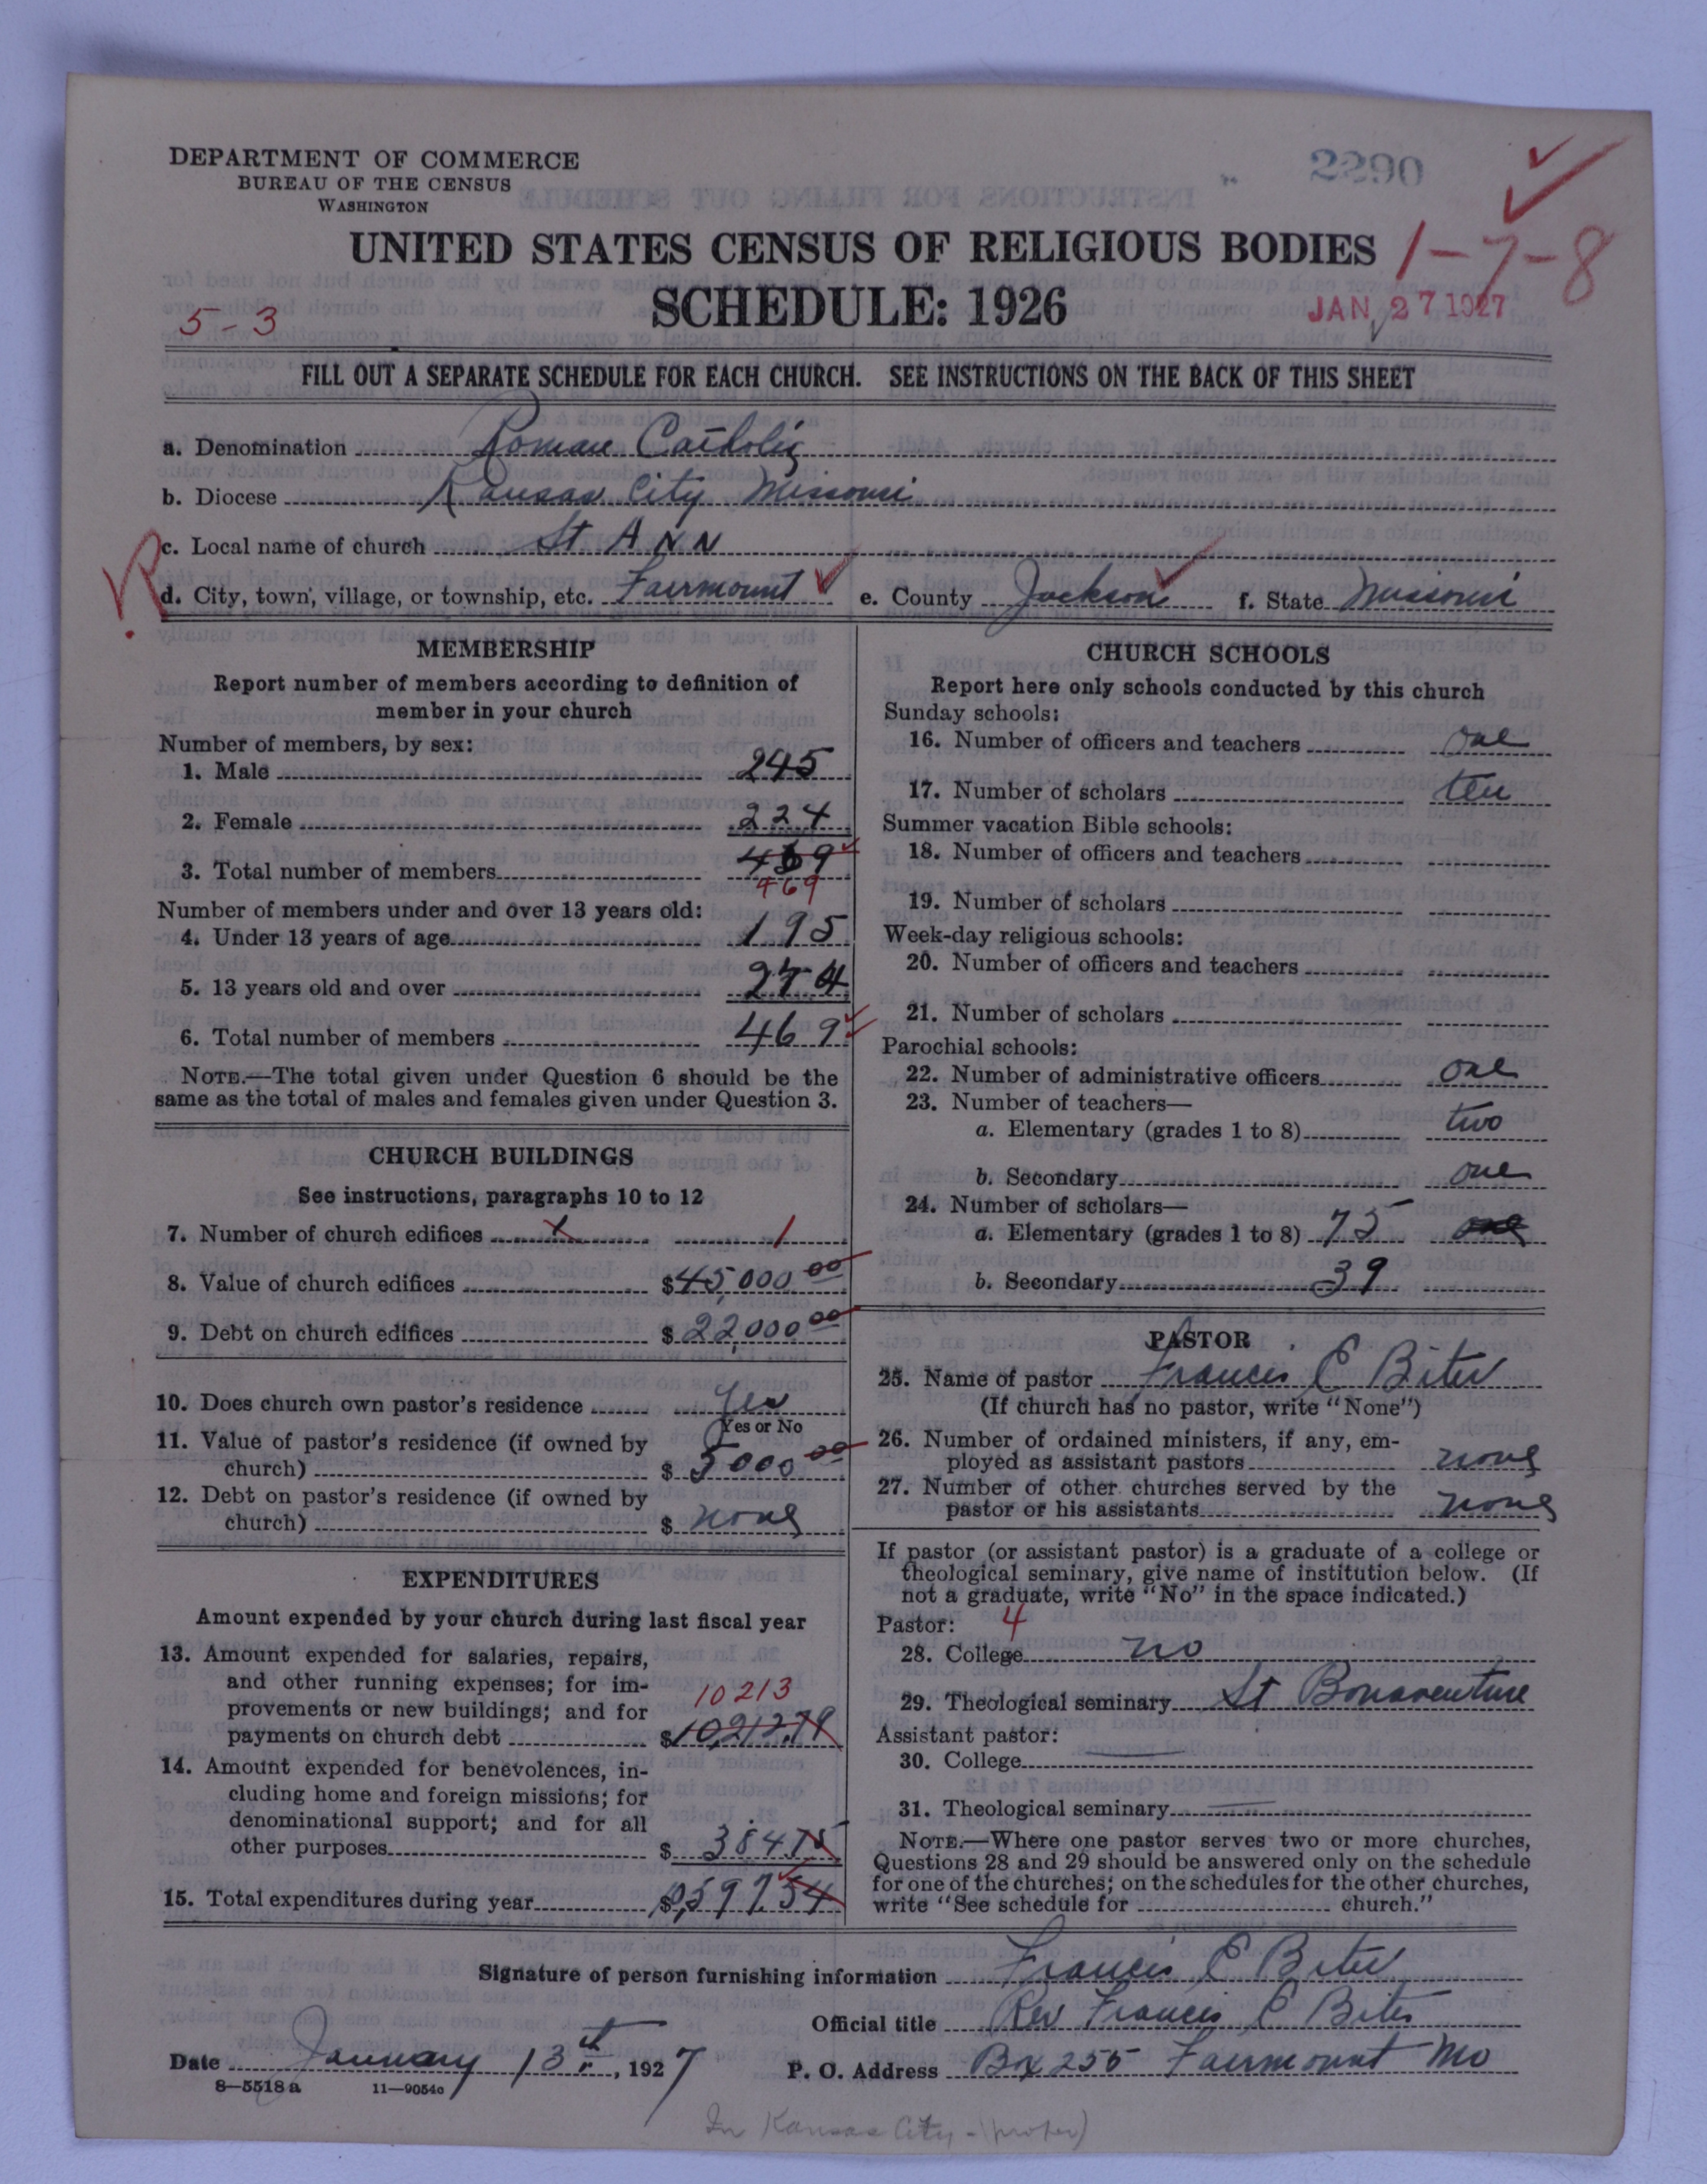 DEPARTMENT OF COMMERCE
BUREAU OF THE CENSUS
WASHINGTON
2290
UNITED STATES CENSUS OF RELIGIOUS BODIES
1-7-8
SCHEDULE: 1926
5-3
JAN 27 1927
FILL OUT A SEPARATE SCHEDULE FOR EACH CHURCH. SEE INSTRUCTIONS ON THE BACK OF THIS SHEET
a. Denomination Roman Catholic
b. Diocese Kansas City Missouri
c. Local name of church St ANN
d. City, town, village, or township, etc. Fairmount e. County Jackson f. State Missouri
MEMBERSHIP
Report number of members according to definition of
member in your church
Number of members, by sex:
1. Male 245
2. Female 224
3. Total number of members 469
469
Number of members under and over 13 years old:
4. Under 13 years of age 195
5. 13 years old and over 274
6. Total number of members 469
NOTE.—The total given under Question 6 should be the
same as the total of males and females given under Question 3.
CHURCH BUILDINGS
See instructions, paragraphs 10 to 12
7. Number of church edifices x 1
8. Value of church edifices $45,000 00
9. Debt on church edifices $22,000 00
10. Does church own pastor's residence Yes
Yes or No
11. Value of pastor's residence (if owned by
church) $5000 00
12. Debt on pastor's residence (if owned by
church) $none
EXPENDITURES
Amount expended by your church during last fiscal year
13. Amount expended for salaries, repairs,
and other running expenses; for im-
provements or new buildings; and for 10213
payments on church debt $10,212.79
14. Amount expended for benevolences, in-
cluding home and foreign missions; for
denominational support; and for all
other purposes $384.75
15. Total expenditures during year $10,597.54
CHURCH SCHOOLS
Report here only schools conducted by this church
Sunday schools:
16. Number of officers and teachers one
17. Number of scholars ten
Summer vacation Bible schools:
18. Number of officers and teachers
19. Number of scholars
Week-day religious schools:
20. Number of officers and teachers
21. Number of scholars
Parochial schools:
22. Number of administrative officers one
23. Number of teachers—
a. Elementary (grades 1 to 8) two
b. Secondary one
24. Number of scholars—
a. Elementary (grades 1 to 8) 75 one
b. Secondary 39
PASTOR
25. Name of pastor Francis E Biter
(If church has no pastor, write "None")
26. Number of ordained ministers, if any, em-
ployed as assistant pastors none
27. Number of other churches served by the
pastor or his assistants none
If pastor (or assistant pastor) is a graduate of a college or
theological seminary, give name of institution below. (If
not a graduate, write "No" in the space indicated.)
Pastor: 4
28. College no
29. Theological seminary St Bonaventure
Assistant pastor:
30. College
31. Theological seminary
NOTE.—Where one pastor serves two or more churches,
Questions 28 and 29 should be answered only on the schedule
for one of the churches; on the schedules for the other churches,
write "See schedule for church."
Signature of person furnishing information Francis E Biter
Official title Rev Francis E Biter
Date January 13th, 1927 P. O. Address Box 255 Fairmount Mo
8—5518 a 11—9054o
In Kansas City - (proper)